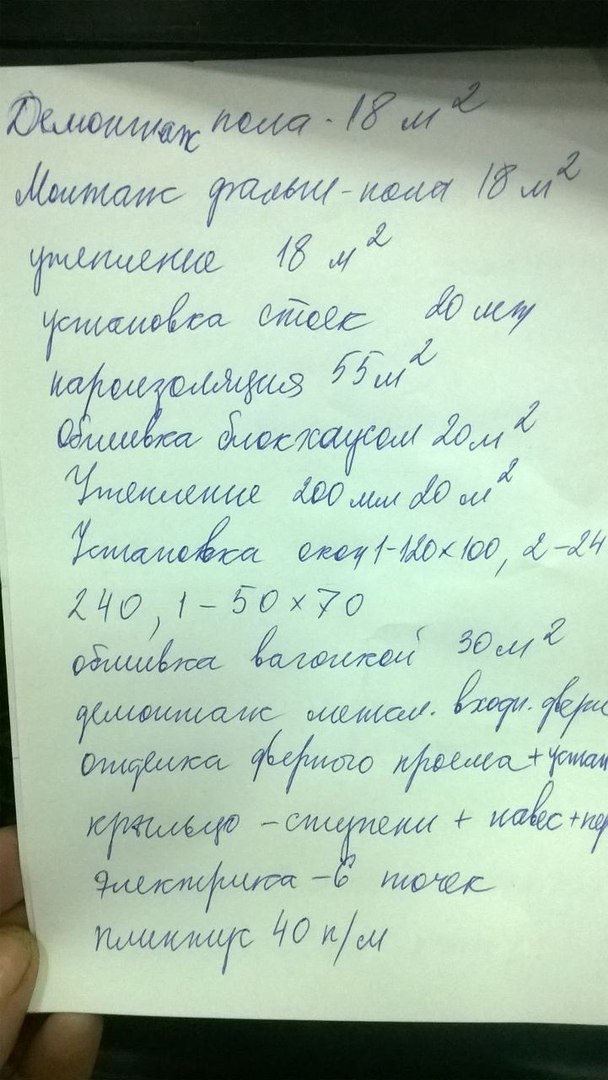 Демонтаж пола - 18 м²
Монтаж фальш-пола 18 м²
утепление 18 м²
установка стоек 20 шт
пароизоляция 55 м²
Обшивка блокхаусом 20 м²
Утепление 200 мм 20 м²
Установка окон 1-120×100, 2-24
240, 1-50×70
обшивка вагонкой 30 м²
демонтаж метал. входн. двери
отделка дверного проема + устан
крыльцо - ступени + навес + пер
Электрика - 6 точек
плинтус 40 п/м